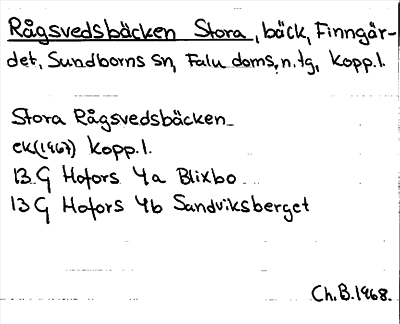 Rågsvedsbäcken Stora, bäck, Finngär-
det, Sundborns sn, Falu doms.n.tg, Kopp.l.
Stora Rågsvedsbäcken
ek(1967) Kopp.l.
13 G Hofors 4a Blixbo
13 G Hofors 4b Sandviksberget
Ch.B.1968.